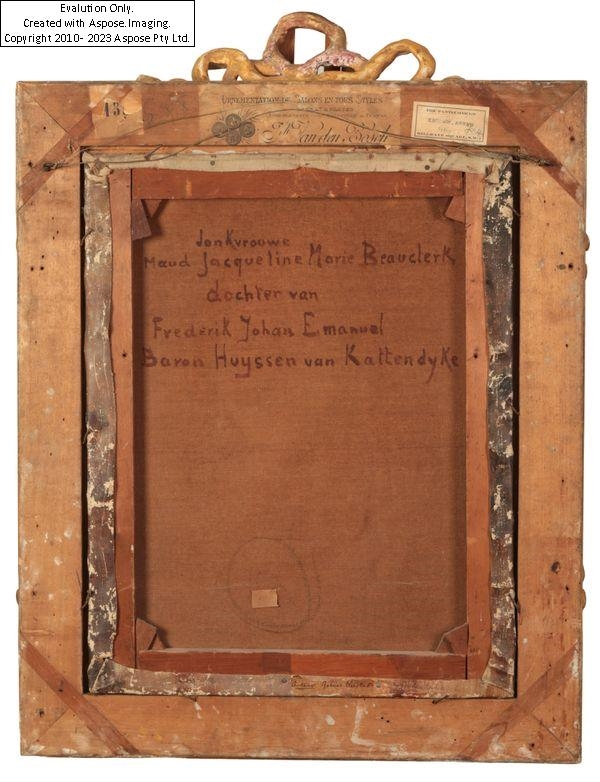 Evalution Only.
Created with Aspose.Imaging.
Copyright 2010- 2023 Aspose Pty Ltd.
ORNEMENTATION DE SALONS EN TOUS STYLES
Van den Bosch
Jonkvrouwe
Maud Jacqueline Marie Beauclerk
dochter van
Frederik Johan Emanuel
Baron Huyssen van Kattendyke